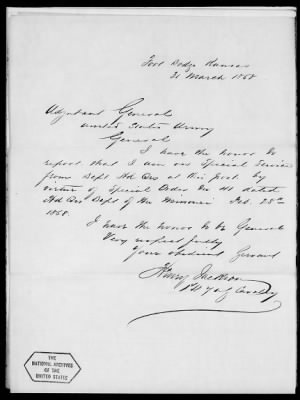 Fort Dodge Kansas
31 March 1868
Adjutant General
United States Army
General
I have the honor to
report that I am on Special Service
from Dept Hd Qrs at this post by
virtue of Special Order No 41 dated
Hd Qrs Dept of the Missouri Feb. 28th
1868.
I have the honor to be General
Very respectfully
Your obedient Servant
Henry Jackson
7 Cavalry
THE
NATIONAL ARCHIVES
OF THE
UNITED STATES